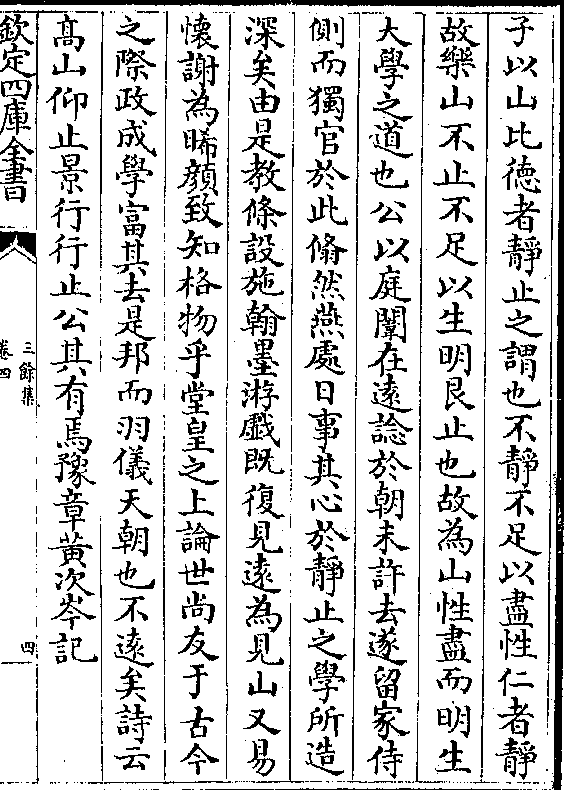 子以山比徳者靜止之謂也不靜不足以盡性仁者靜
故樂山不止不足以生明艮止也故為山性盡而明生
大學之道也公以庭闈在逺諗於朝未許去遂留家侍
側而獨官於此翛然燕處日事其心於靜止之學所造
深矣由是教條設施翰墨游戲既復見逺為見山又易
懐謝為睎顔致知格物乎堂皇之上論世尚友于古今
之際政成學富其去是邦而羽儀天朝也不逺矣詩云
髙山仰止景行行止公其有焉豫章黄次岑記
欽定四庫全書
三餘集
卷四
四